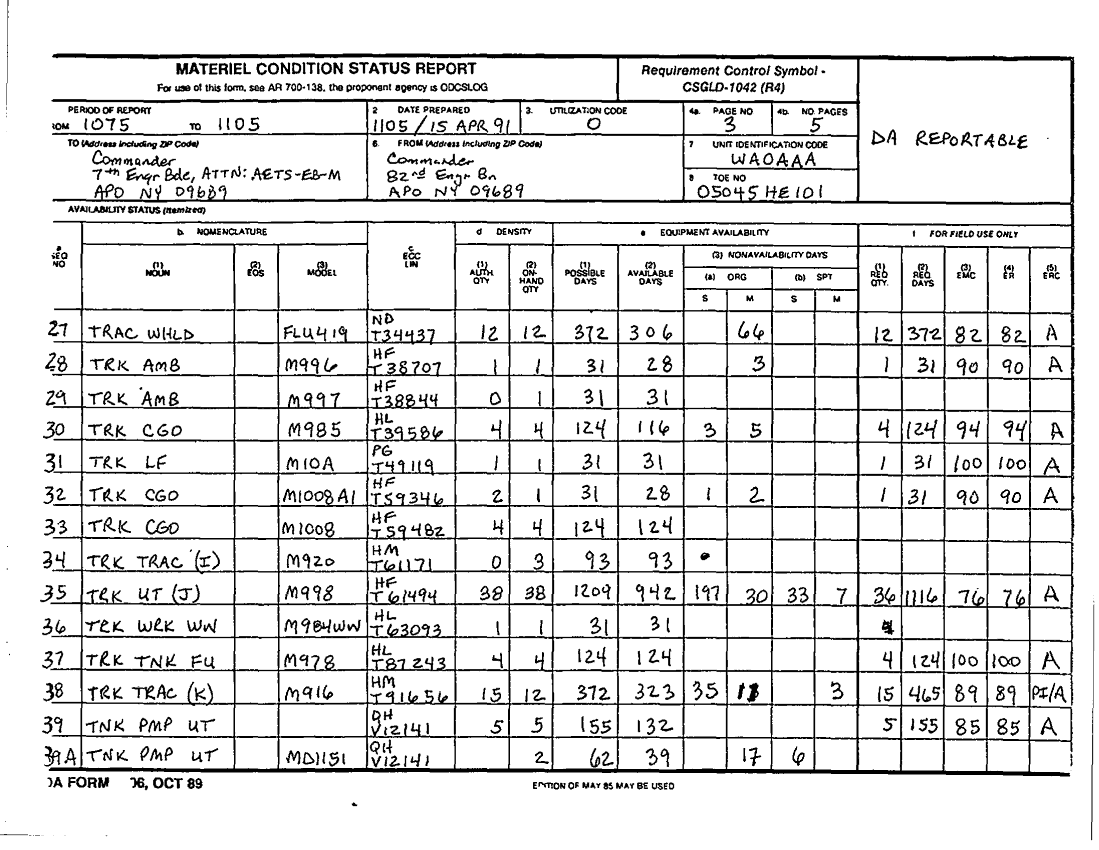 MATERIEL CONDITION STATUS REPORT
For use of this form, see AR 700-138, the proponent agency is ODCSLOG
Requirement Control Symbol -
CSGLD-1042 (R4)
DA REPORTABLE
PERIOD OF REPORT
ROM 1075 TO 1105
2 DATE PREPARED
1105/15 APR 91
3. UTILIZATION CODE
0
4a. PAGE NO
3
4b. NO. PAGES
5
TO (Address including ZIP Code)
Commander
7th Engr Bde, ATTN: AETS-EB-M
APO NY 09689
6. FROM (Address including ZIP Code)
Commander
82nd Engr Bn
APO NY 09689
7 UNIT IDENTIFICATION CODE
WAOAAA
8 TOE NO
05045HE101
AVAILABILITY STATUS (Itemized)
SEQ NO
b. NOMENCLATURE
(1) NOUN
(2) EOS
(3) MODEL
c. ECC LIN
d DENSITY
(1) AUTH QTY
(2) ON-HAND QTY
e EQUIPMENT AVAILABILITY
(1) POSSIBLE DAYS
(2) AVAILABLE DAYS
(3) NONAVAILABILITY DAYS
(a) ORG
(b) SPT
S M S M
f FOR FIELD USE ONLY
(1) REQ QTY.
(2) REQ. DAYS
(3) EMC
(4) ER
(5) ERC
27 TRAC WHLD FLU419 ND T34437 12 12 372 306 66 12 372 82 82 A
28 TRK AMB M996 HF T38707 1 1 31 28 3 1 31 90 90 A
29 TRK AMB M997 HF T38844 0 1 31 31
30 TRK CGO M985 HL T39586 4 4 124 116 3 5 4 124 94 94 A
31 TRK LF M10A PG T49119 1 1 31 31 1 31 100 100 A
32 TRK CGO M1008A1 HF T59346 2 1 31 28 1 2 1 31 90 90 A
33 TRK CGO M1008 HF T59482 4 4 124 124
34 TRK TRAC (I) M920 HM T61171 0 3 93 93
35 TRK UT (J) M998 HF T61494 38 38 1209 942 197 30 33 7 36 1116 76 76 A
36 TRK WRK WN M984WW HL T63093 1 1 31 31
37 TRK TNK FU M978 HL T87243 4 4 124 124 4 124 100 100 A
38 TRK TRAC (K) M916 HM T91656 15 12 372 323 35 11 3 15 465 89 89 PI/A
39 TNK PMP UT QH V12141 5 5 155 132 5 155 85 85 A
39A TNK PMP UT MD1151 QH V12141 2 62 39 17 6
DA FORM 06, OCT 89
EDITION OF MAY 85 MAY BE USED